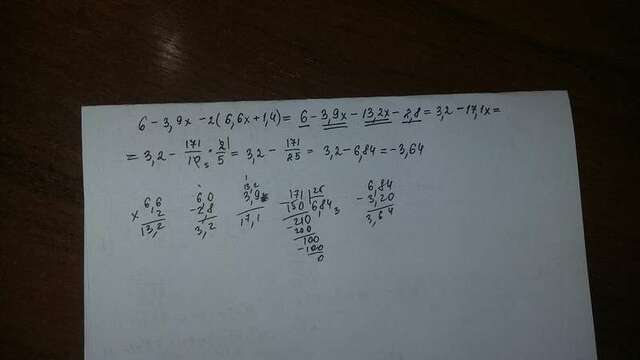 6 - 3,9x - 2(6,6x + 1,4) = 6 - 3,9x - 13,2x - 2,8 = 3,2 - 17,1x =
= 3,2 - 171/10 5 · 21/5 = 3,2 - 171/25 = 3,2 - 6,84 = -3,64
6,6 6,0 13,2 171 25 6,84
× 2 -2,8 3,9 150 6,84 -3,20
13,2 3,2 17,1 -210 3,64
200
100
-100
0